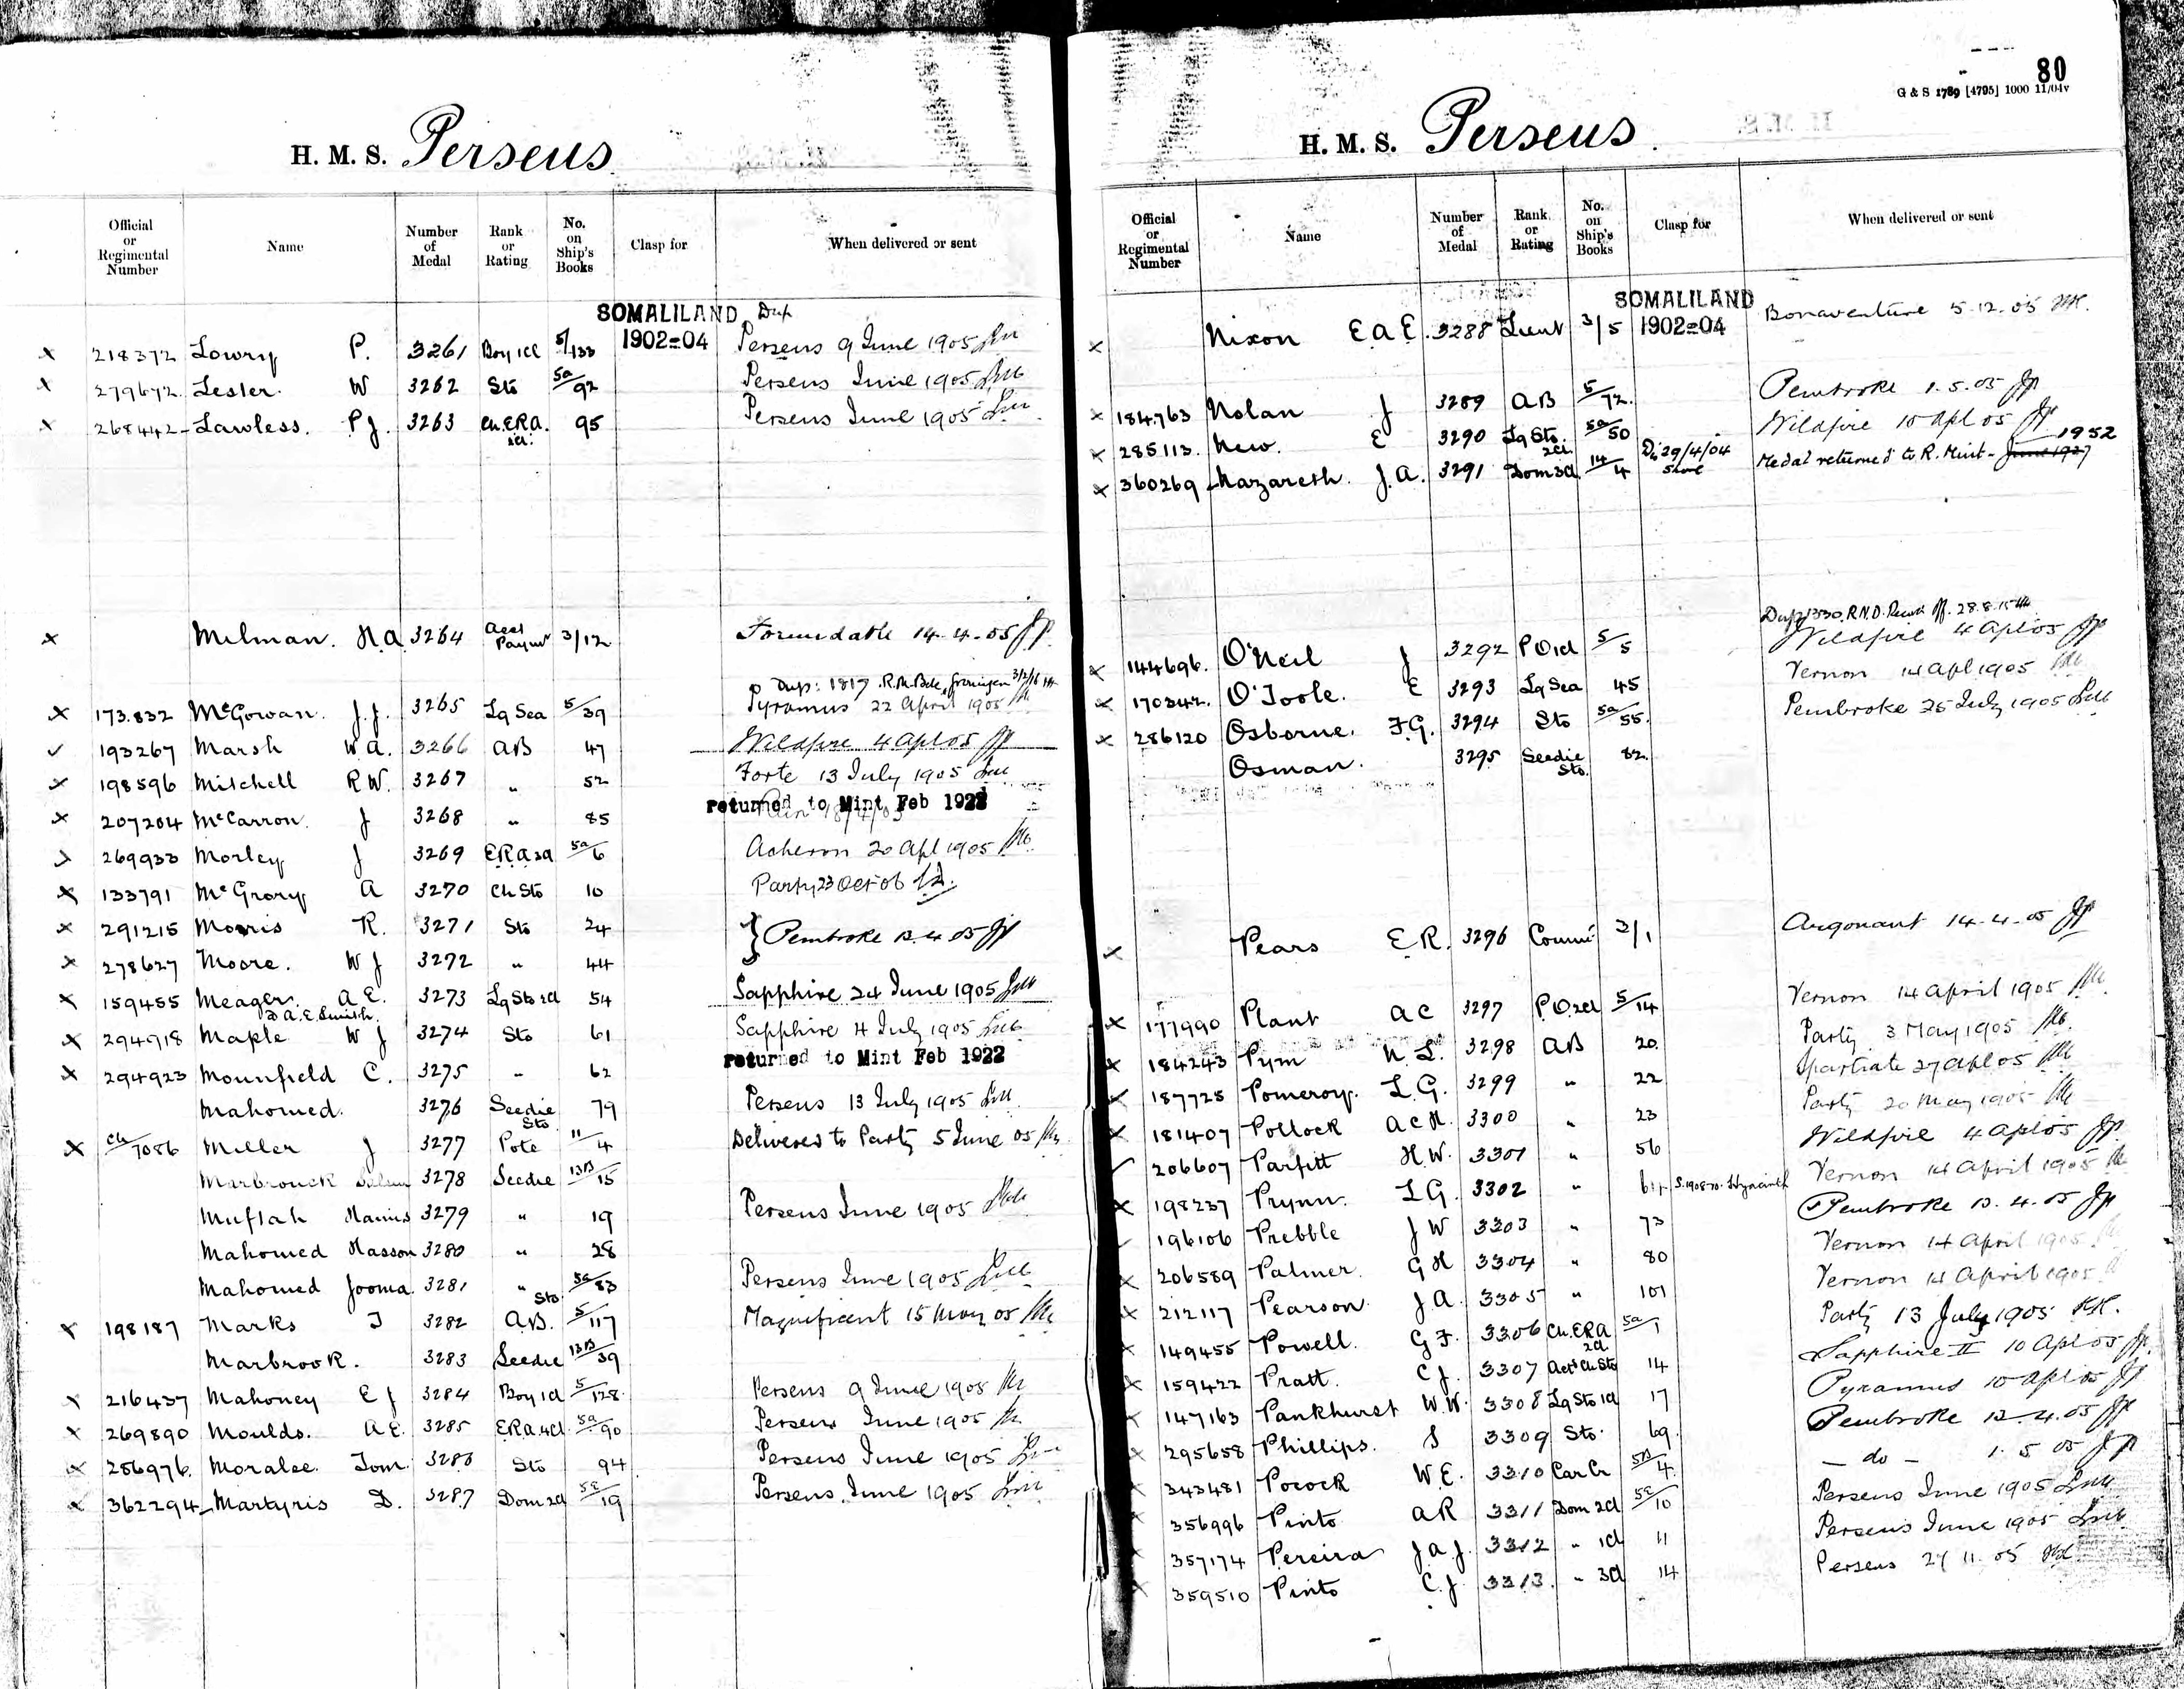 H. M. S. Perseus
Official or Regimental Number Name Number of Medal Rank or Rating No. on Ship's Books Clasp for When delivered or sent
SOMALILAND 1902=04 Dup
x 218372 Lowry P. 3261 Boy 1Cl 5/133 Perseus 9 June 1905
x 279672 Lester. W 3262 Sto 5a/92 Perseus June 1905
x 268442 Lawless. P J. 3263 Ch.E.R.A. 95 Perseus June 1905
x Milman. H.A. 3264 Asst Paymr 3/12 Formidable 14-4-05 JP
Dup: 1817 R.M. Bde 3/2/16
x 173.832 McGowan. J.J. 3265 Lg Sea 5/39 Pyramus 22 April 1905
✓ 193267 Marsh W.A. 3266 AB 47 Wildfire 4 Apl 05 JP
x 198596 Mitchell R W. 3267 " 52 Forte 13 July 1905
x 207204 McCarron. J 3268 " 85 returned to Mint Feb 1922
269933 Morley J 3269 E.R.A 3Cl 5a/6 Acheron 20 Apl 1905
x 133791 McGrory A 3270 Ch Sto 10 Party 23 Oct 06
x 291215 Morris R. 3271 Sto 24 } Pembroke 13.4.05 JP
x 278627 Moore. W J 3272 " 44
x 159455 Meager. A E. 3273 Lg Sto 2Cl 54 Sapphire 24 June 1905
A.E. Smith.
x 294918 Maple W J 3274 Sto 61 Sapphire 4 July 1905
x 294923 Mounfield C. 3275 " 62 returned to Mint Feb 1922
Mahomed. 3276 Seedie Sto 79 Perseus 13 July 1905
x Ch/7086 Miller J 3277 Pote 11/4 Delivered to Party 5 June 05
Marbrouck Salem 3278 Seedie 13B/15
Muftah 3279 " 19 Perseus June 1905
Mahomed Hasson 3280 " 28
Mahomed Jooma 3281 " Sto 5a/83 Perseus June 1905
x 198187 Marks J 3282 A.B. 5/117 Magnificent 15 May 05
Marbrook. 3283 Seedie 13B/39
x 216437 Mahoney E J 3284 Boy 1Cl 5/128 Perseus 9 June 1905
x 269890 Moulds. A E. 3285 E.R.A 4Cl 5a/90 Perseus June 1905
x 286976. Moralee. Tom 3286 Sto 94 Perseus June 1905
x 362294 Martyris D. 3287 Dom 2Cl 5c/19 Perseus June 1905
80
G & S 1789 [4795] 1000 11/04v
H. M. S. Perseus.
Official or Regimental Number Name Number of Medal Rank or Rating No. on Ship's Books Clasp for When delivered or sent
SOMALILAND 1902=04
x Nixon E.A.E. 3288 Lieut 3/5 Bonaventure 5.12.05
x 184763 Nolan J 3289 AB 5/72. Pembroke 1.5.05 JP
x 285113. New. E 3290 Lg Sto. 2Cl 5a/50 Wildfire 15 Apl 05 JP
x 360269 Nazareth. J.A. 3291 Dom 3Cl 14/4 D. 29/4/04 Medal returned to R. Mint - June 1927 1952
Dup 1330 R.N.D. Record Off. 28.8.15
x 144696. O'Neil J 3292 P O 1Cl 5/5 Wildfire 4 Apl 05 JP
x 170342. O'Toole. E 3293 Lg Sea 45 Vernon 14 Apl 1905
x 286120 Osborne. F.G. 3294 Sto 5a/55. Pembroke 25 July 1905
Osman. 3295 Seedie Sto. 82.
x Pears E R. 3296 Commr 3/1 Argonaut 14-4-05 JP
x 177990 Plant A C 3297 P.O 2Cl 5/14 Vernon 14 April 1905
x 184243 Pym N L. 3298 AB 20. Party 3 May 1905
187728 Pomeroy. L.G. 3299 " 22 Spartiate 27 Apl 05
x 181407 Pollock A C H. 3300 " 23 Party 20 May 1905
✓ 206607 Parfitt H.W. 3301 " 56 Wildfire 4 Apl 05 JP
x 198237 Prynn. L G. 3302 " 64 S.190870. Hyacinth Vernon 14 April 1905
196106 Prebble J W 3303 " 73 Pembroke 13.4.05 JP
x 206589 Palmer. G H 3304 " 80 Vernon 14 April 1905
x 212117 Pearson J.A. 3305 " 101 Vernon 14 April 1905
x 149455 Powell. G F. 3306 Ch.E.R.A 2Cl 5a/1 Party 13 July 1905
x 159422 Pratt. C J. 3307 Actg Ch Sto 14 Sapphire II 10 Apl 05 JP.
x 147163 Pankhurst W.W. 3308 Lg Sto 1Cl 17 Pyramus 15 Apl 05 JP
x 295658 Phillips. S 3309 Sto. 69. Pembroke 13.4.05 JP
x 343481 Pocock W.E. 3310 Car Cr 5B/4. - do - 1.5.05 JP
356996 Pinto A R 3311 Dom 2Cl 5c/10 Perseus June 1905
357174 Pereira J A J. 3312 " 1Cl 11 Perseus June 1905
359510 Pinto C.J. 3313. " 3Cl 14 Perseus 27.11.05